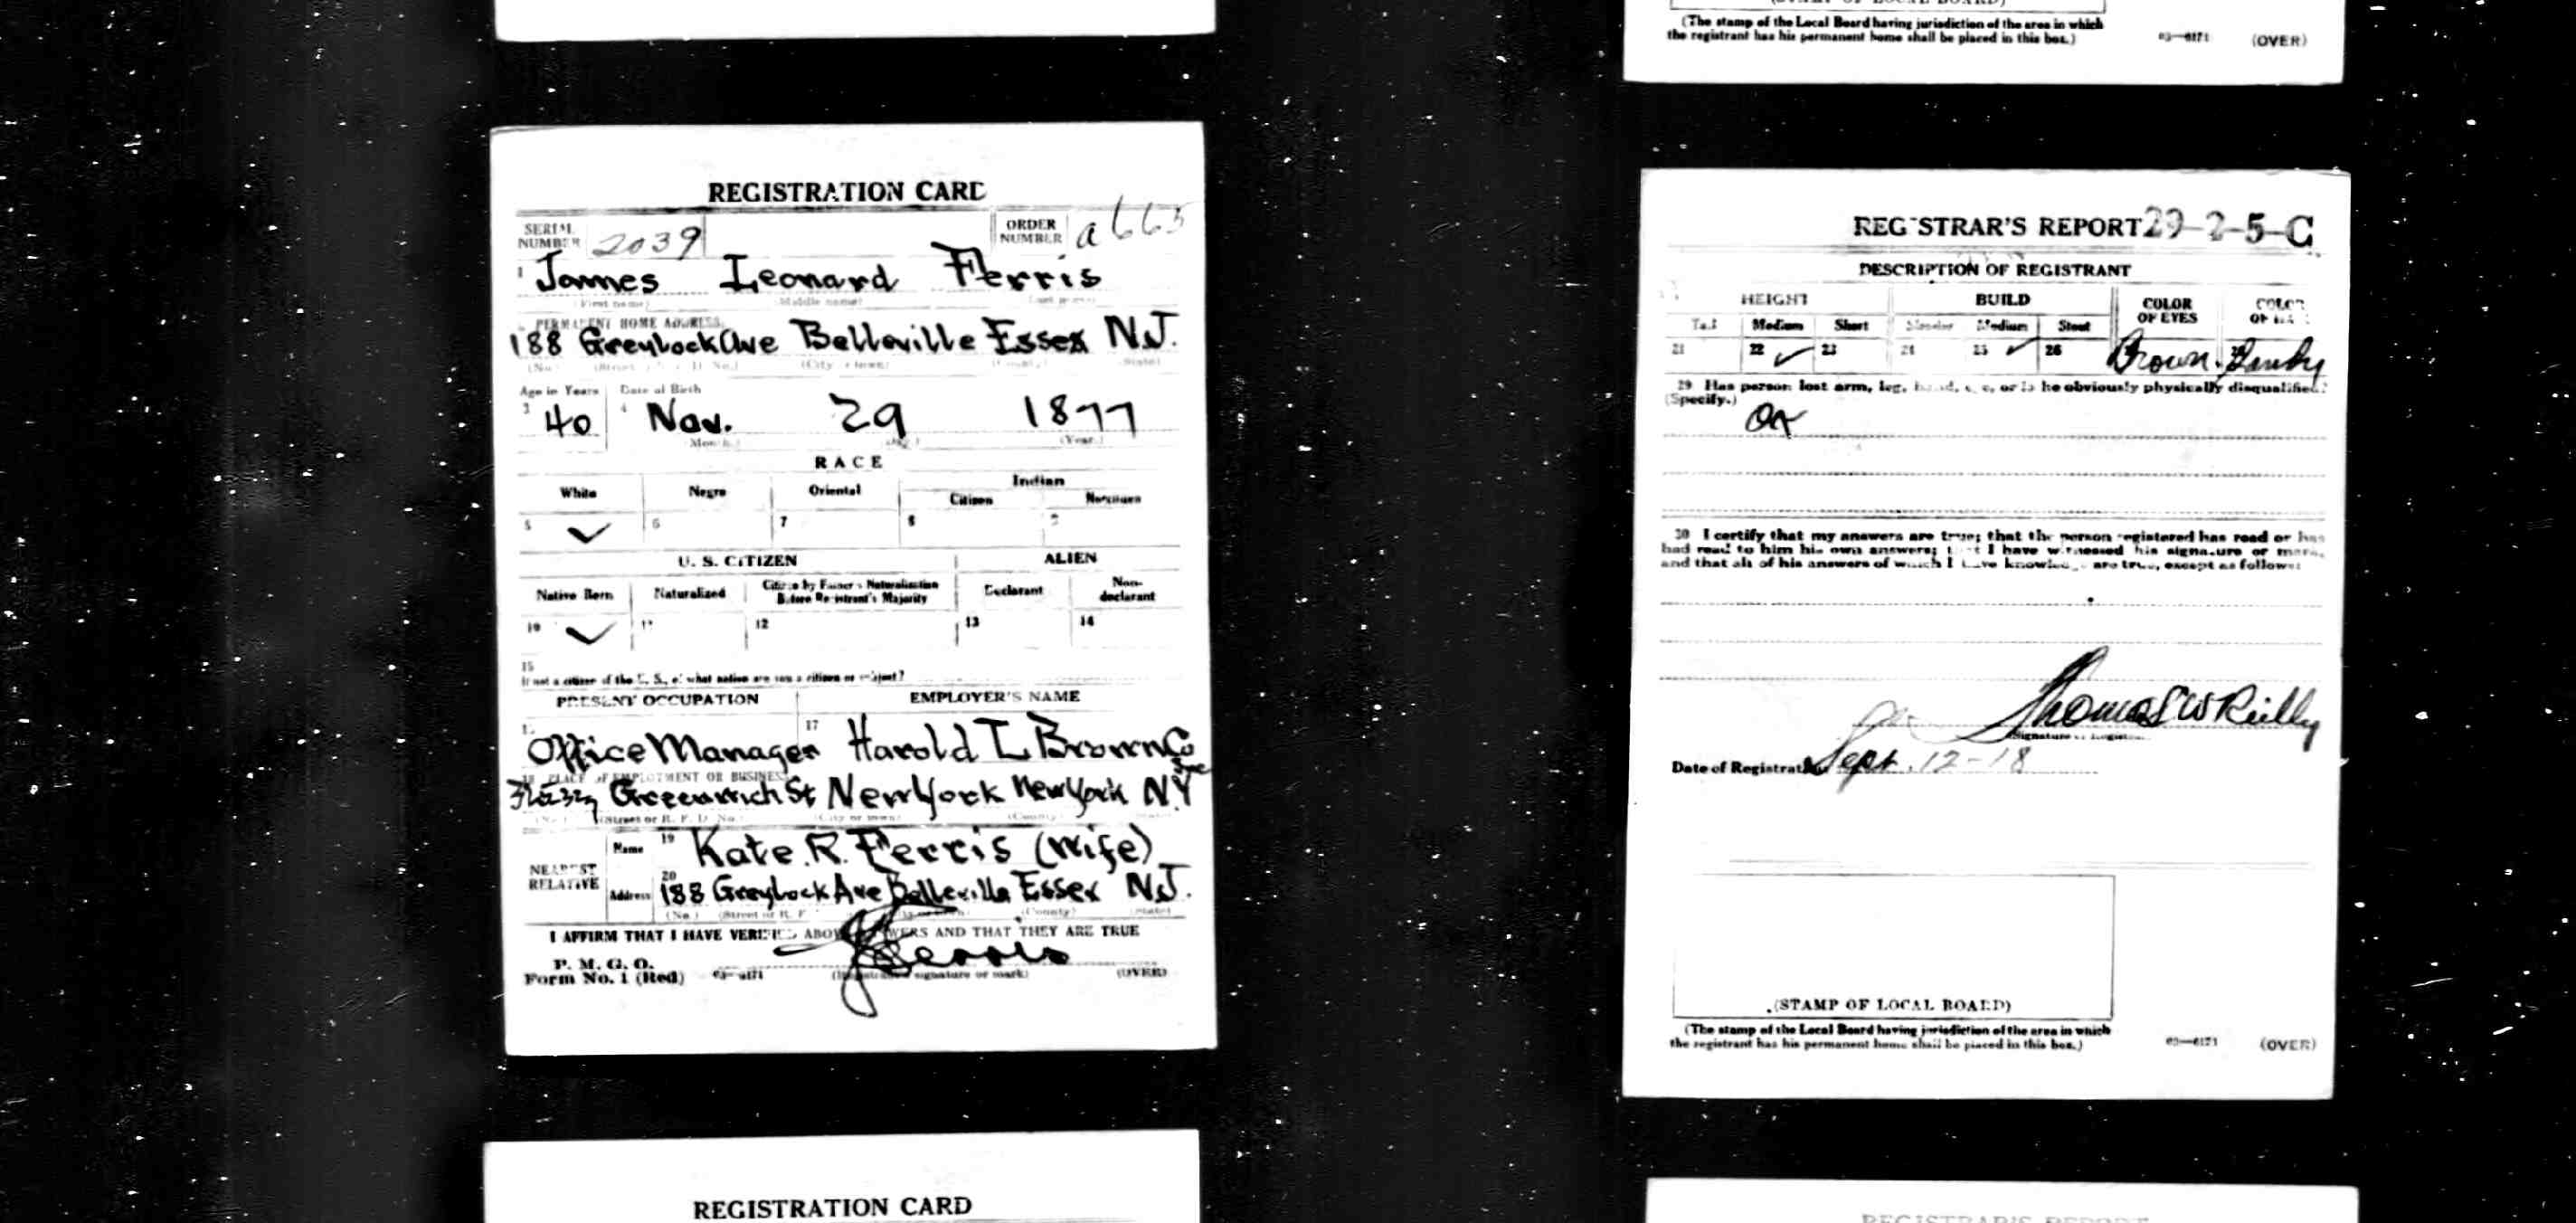 (The stamp of the Local Board having jurisdiction of the area in which
the registrant has his permanent home shall be placed in this box.)
03—6171 (OVER)
REGISTRATION CARD
SERIAL NUMBER 2039
ORDER NUMBER a 665
1 James Leonard Ferris
(First name) (Middle name) (Last name)
PERMANENT HOME ADDRESS:
188 Greylock Ave Belleville Essex N.J.
(No.) (City or town) (County) (State)
Age in Years Date of Birth
3 40 4 Nov. 29 1877
(Month.) (Day.) (Year.)
RACE
White Negro Oriental Indian
Citizen Noncitizen
5 ✓ 6 7 8 9
U. S. CITIZEN ALIEN
Native Born Naturalized Citizen by Father's Naturalization Before Registrant's Majority Declarant Non-declarant
10 ✓ 11 12 13 14
15
If not a citizen of the U. S., of what nation are you a citizen or subject?
PRESENT OCCUPATION EMPLOYER'S NAME
17
Office Manager Harold L Brown Co
PLACE OF EMPLOYMENT OR BUSINESS
Greenwich St New York New York N.Y
(Street or R. F. D. No.) (City or town) (County)
NEAREST RELATIVE
Name 19 Kate R. Ferris (wife)
Address 20 188 Greylock Ave Belleville Essex N.J.
(No.) (Street or R. F (County) (State)
I AFFIRM THAT I HAVE VERIFIED ABOVE ANSWERS AND THAT THEY ARE TRUE
P. M. G. O.
Form No. 1 (Red) 03—6171 (Registrant's signature or mark) (OVER)
Ferris
REGISTRATION CARD
REGISTRAR'S REPORT 29-2-5-C
DESCRIPTION OF REGISTRANT
HEIGHT BUILD COLOR OF EYES COLOR OF HAIR
Tall Medium Short Slender Medium Stout
21 22 ✓ 23 24 25 ✓ 26 Brown
29 Has person lost arm, leg, hand, eye, or is he obviously physically disqualified?
(Specify.)
OK
30 I certify that my answers are true; that the person registered has read or has
had read to him his own answers; that I have witnessed his signature or mark,
and that all of his answers of which I have knowledge are true, except as follows:
Thomas W Reilly
(Signature of Registrar)
Date of Registration Sept. 12-18
(STAMP OF LOCAL BOARD)
(The stamp of the Local Board having jurisdiction of the area in which
the registrant has his permanent home shall be placed in this box.)
03—6171 (OVER)
REGISTRAR'S REPORT